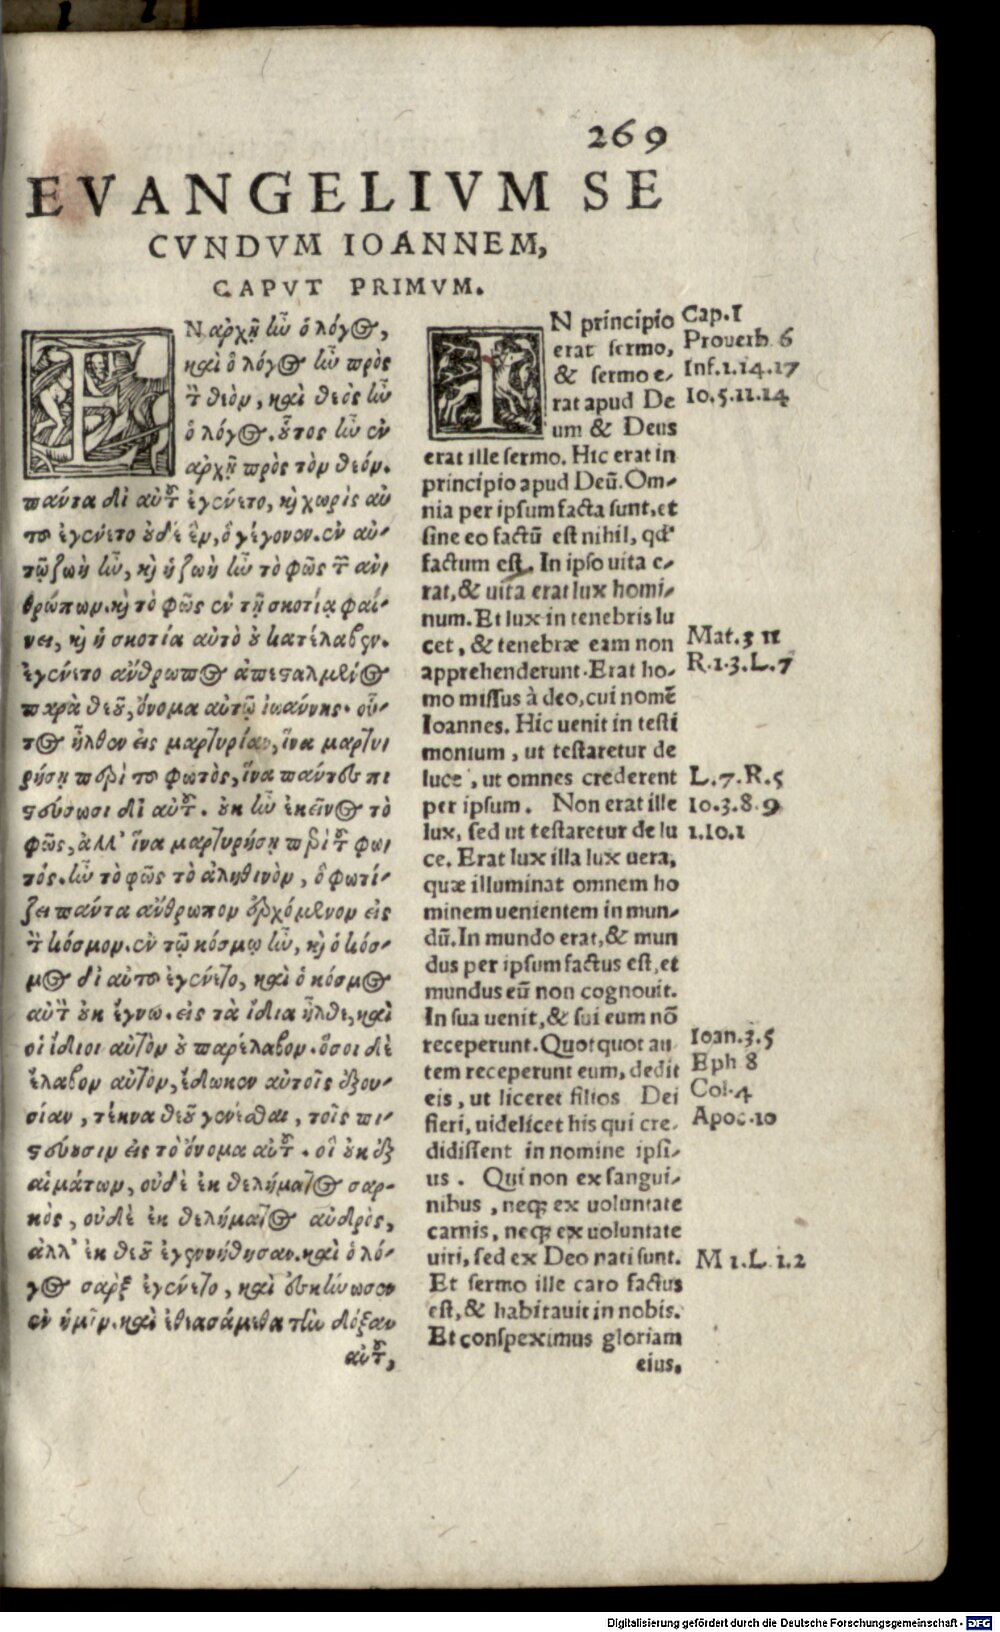 269
EVANGELIVM SE
CVNDVM IOANNEM,
CAPVT PRIMVM.
ΕΝ αρχῇ ἦν ὁ λόγος,
καὶ ὁ λόγος ἦν πρὸς
τὸν θεὸν, καὶ θεὸς ἦν
ὁ λόγος. οὗτος ἦν ἐν
αρχῇ πρὸς τὸν θεόν.
παντα δι αὐτοῦ ἐγένετο, καὶ χωρὶς αὐ
τοῦ ἐγένετο οὐδὲ ἓν, ὃ γέγονεν. ἐν αὐ-
τῷ ζωὴ ἦν, καὶ ἡ ζωὴ ἦν τὸ φῶς τῶν ἀν-
θρώπων. καὶ τὸ φῶς ἐν τῇ σκοτίᾳ φαί-
νει, καὶ ἡ σκοτία αὐτὸ οὐ κατέλαβεν.
ἐγένετο ἄνθρωπος ἀπεσταλμένος
παρὰ θεοῦ, ὄνομα αὐτῷ ἰωάννης. οὗ-
τος ἦλθεν εἰς μαρτυρίαν, ἵνα μαρτυ-
ρήσῃ περὶ τοῦ φωτὸς, ἵνα πάντες πι
στεύσωσι δι αὐτοῦ. οὐκ ἦν ἐκεῖνος τὸ
φῶς, ἀλλ' ἵνα μαρτυρήσῃ περὶ τοῦ φω-
τός. ἦν τὸ φῶς τὸ ἀληθινὸν, ὃ φωτί-
ζει πάντα ἄνθρωπον ἐρχόμενον εἰς
τὸν κόσμον. ἐν τῷ κόσμῳ ἦν, καὶ ὁ κόσ-
μος δι αὐτοῦ ἐγένετο, καὶ ὁ κόσμος
αὐτὸν οὐκ ἔγνω. εἰς τὰ ἴδια ἦλθε, καὶ
οἱ ἴδιοι αὐτὸν οὐ παρέλαβον. ὅσοι δὲ
ἔλαβον αὐτὸν, ἔδωκεν αὐτοῖς ἐξου-
σίαν, τέκνα θεοῦ γενέσθαι, τοῖς πι-
στεύουσιν εἰς τὸ ὄνομα αὐτοῦ. οἳ οὐκ ἐξ
αἱμάτων, οὐδὲ ἐκ θελήματος σαρ-
κὸς, οὐδὲ ἐκ θελήματος ανδρὸς,
ἀλλ' ἐκ θεοῦ ἐγεννήθησαν. καὶ ὁ λό-
γος σαρξ ἐγένετο, καὶ ἐσκήνωσεν
ἐν ἡμῖν. καὶ ἐθεασάμεθα τὴν δόξαν
αὐτοῦ,
IN principio
erat sermo,
& sermo e-
rat apud De
um & Deus
erat ille sermo. Hic erat in
principio apud Deū. Om-
nia per ipsum facta sunt, et
sine eo factū est nihil, qd'
factum est. In ipso uita e-
rat, & uita erat lux homi-
num. Et lux in tenebris lu
cet, & tenebræ eam non
apprehenderunt. Erat ho-
mo missus à deo, cui nomē
Ioannes. Hic uenit in testi
monium, ut testaretur de
luce, ut omnes crederent
per ipsum. Non erat ille
lux, sed ut testaretur de lu
ce. Erat lux illa lux uera,
quæ illuminat omnem ho
minem uenientem in mun-
dū. In mundo erat, & mun
dus per ipsum factus est, et
mundus eū non cognouit.
In sua uenit, & sui eum nō
receperunt. Quotquot au
tem receperunt eum, dedit
eis, ut liceret filios Dei
fieri, uidelicet his qui cre-
didissent in nomine ipsi-
us. Qui non ex sangui-
nibus, neqꝫ ex uoluntate
carnis, neqꝫ ex uoluntate
uiri, sed ex Deo nati sunt.
Et sermo ille caro factus
est, & habitauit in nobis.
Et conspeximus gloriam
eius.
Cap. I
Prouerb. 6
Inf. 1.14.17
Io. 5.11.14
Mat. 3 11
R. 1.3. L. 7
L. 7. R. 5
Io. 3.8.9
1.10.1
Ioan. 3.5
Eph 8
Col. 4
Apoc. 10
M 1. L 1.2
Digitalisierung gefördert durch die Deutsche Forschungsgemeinschaft - DFG